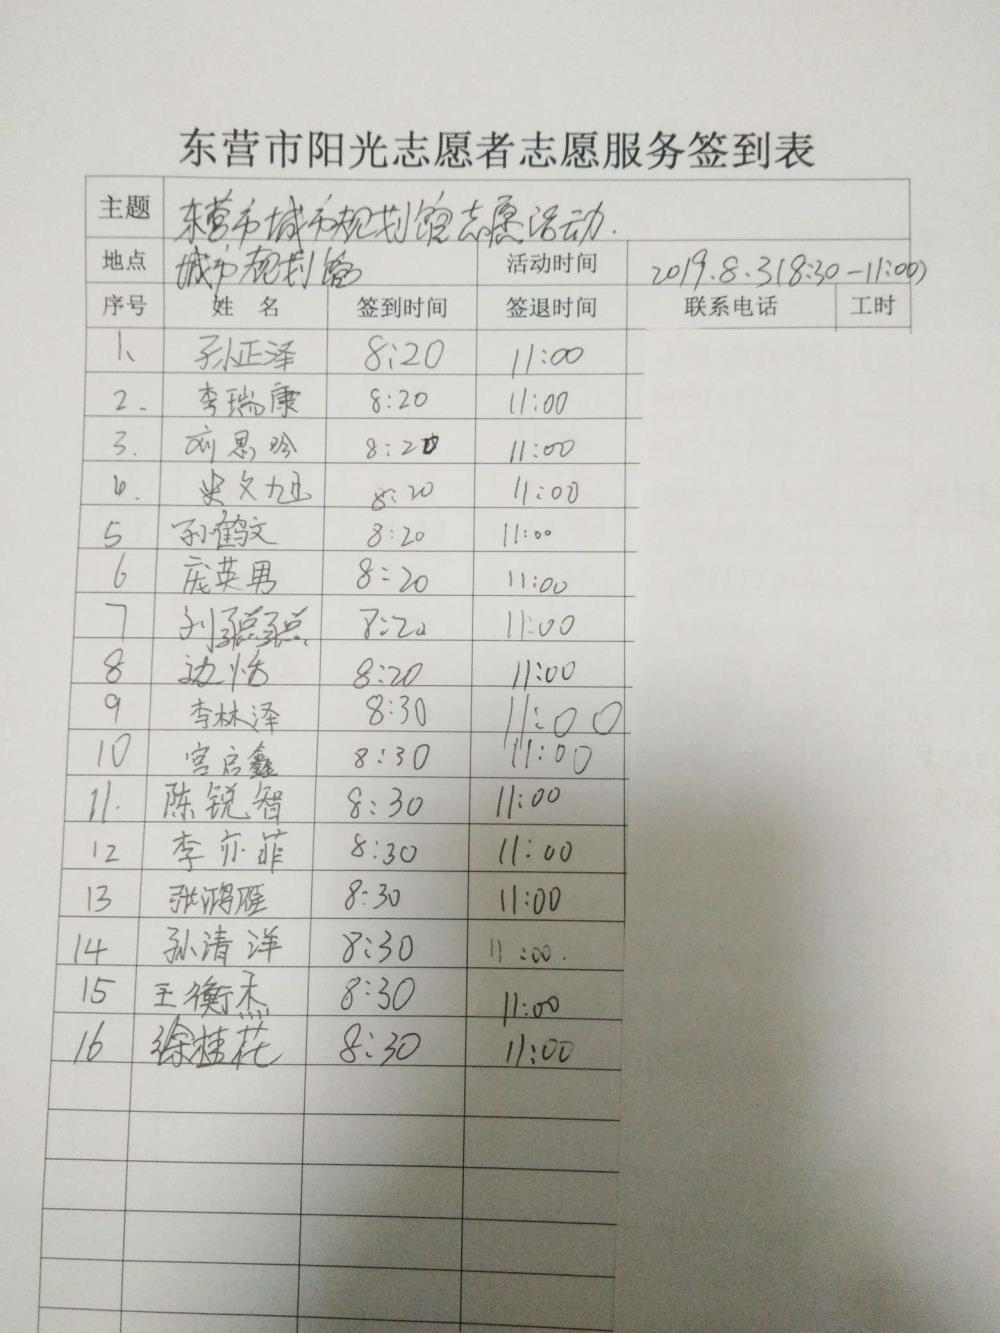 东营市阳光志愿者志愿服务签到表
主题 东营市城市规划馆志愿活动.
地点 城市规划馆 活动时间 2019.8.3(8:30-11:00)
序号 姓 名 签到时间 签退时间 联系电话 工时
1、 孙正泽 8:20 11:00
2. 李瑞康 8:20 11:00
3. 刘思吟 8:20 11:00
4. 史文九 8:20 11:00
5 孙鹤文 8:20 11:00
6 庞英男 8:20 11:00
7 刘 8:20 11:00
8 边恬 8:20 11:00
9 李林泽 8:30 11:00
10 宫启鑫 8:30 11:00
11. 陈锐智 8:30 11:00
12 李亦菲 8:30 11:00
13 张鸿雁 8:30 11:00
14 孙清洋 8:30 11:00.
15 王衡杰 8:30 11:00
16 徐桂花 8:30 11:00